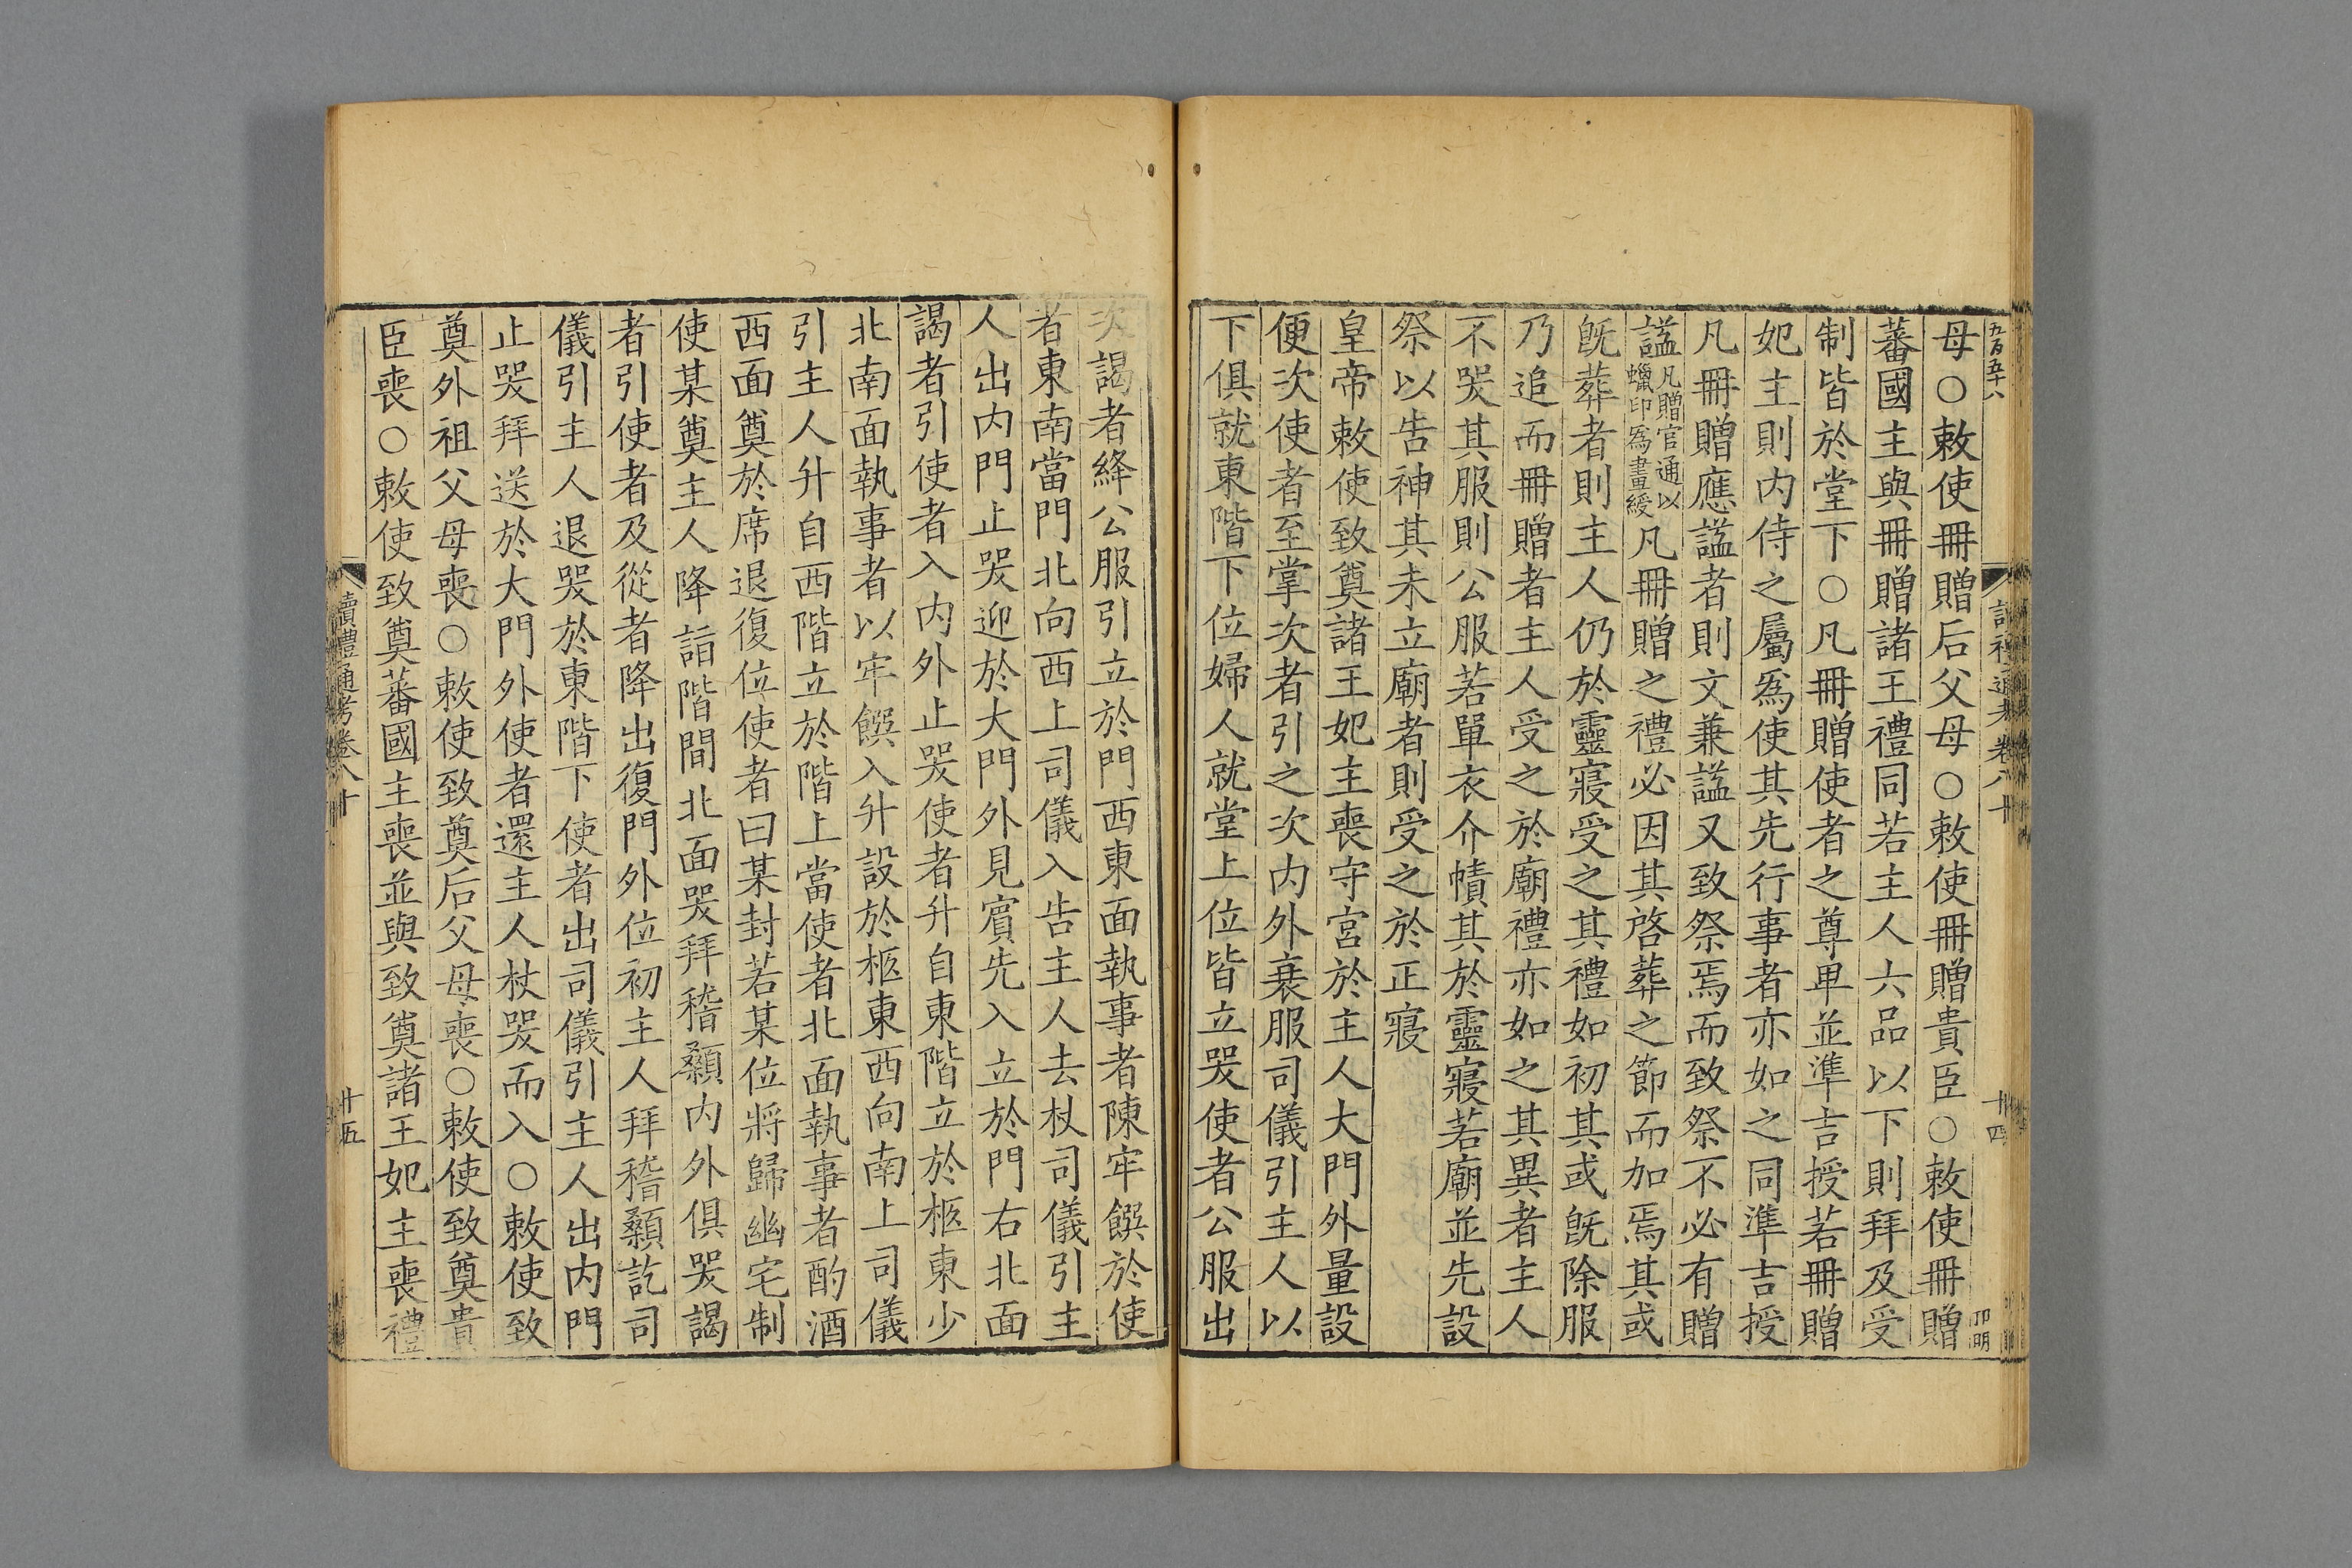 九百五十八
讀禮通考卷八十
十四
母○敕使冊贈后父母○敕使冊贈貴臣○敕使冊贈
蕃國主與冊贈諸王禮同若主人六品以下則拜及受
制皆於堂下○凡冊贈使者之尊卑並準吉授若冊贈
妃主則內侍之屬爲使其先行事者亦如之同準吉授
凡冊贈應諡者則文兼諡又致祭焉而致祭不必有贈
諡凡贈官通以蠟印爲畫綬凡冊贈之禮必因其啓葬之節而加焉其或
旣葬者則主人仍於靈寢受之其禮如初其或旣除服
乃追而冊贈者主人受之於廟禮亦如之其異者主人
不哭其服則公服若單衣介幘其於靈寢若廟並先設
祭以告神其未立廟者則受之於正寢
皇帝敕使致奠諸王妃主喪守宮於主人大門外量設
便次使者至掌次者引之次內外衰服司儀引主人以
下俱就東階下位婦人就堂上位皆立哭使者公服出
次謁者絳公服引立於門西東面執事者陳牢饌於使
者東南當門北向西上司儀入告主人去杖司儀引主
人出內門止哭迎於大門外見賓先入立於門右北面
謁者引使者入內外止哭使者升自東階立於柩東少
北南面執事者以牢饌入升設於柩東西向南上司儀
引主人升自西階立於階上當使者北面執事者酌酒
西面奠於席退復位使者曰某封若某位將歸幽宅制
使某奠主人降詣階間北面哭拜稽顙內外俱哭謁
者引使者及從者降出復門外位初主人拜稽顙訖司
儀引主人退哭於東階下使者出司儀引主人出內門
止哭拜送於大門外使者還主人杖哭而入○敕使致
奠外祖父母喪○敕使致奠后父母喪○敕使致奠貴
臣喪○敕使致奠蕃國主喪並與致奠諸王妃主喪禮
讀禮通考卷八十
廿五